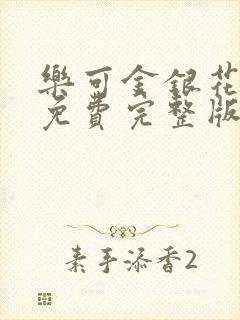 樂可金銀花
免費完整版
素手添香2